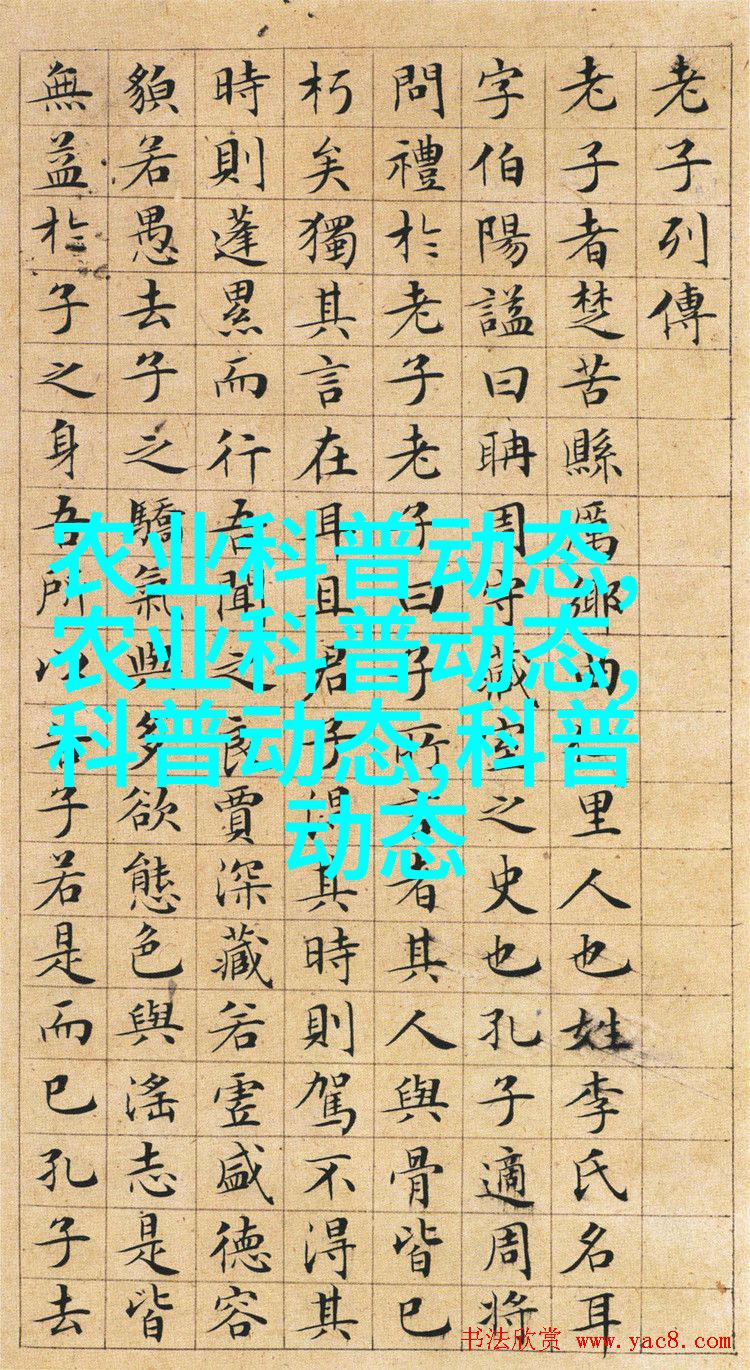 老子列傳
老子者楚苦縣厲鄉曲仁里人也姓李氏名耳
字伯陽謚曰聃周守藏室之史也孔子適周將
問禮於老子老子曰子所言者其人與骨皆已
朽矣獨其言在耳且君子得其時則駕不得其
時則蓬累而行吾聞之良賈深藏若虛盛德容
䫉若愚去子之驕氣與多欲態色與滛志是皆
無益於子之身吾所以告子若是而已孔子去
农业科普动态,
农业科普动态,
科普动态,科普
动态
书法欣赏 www.yac8.com